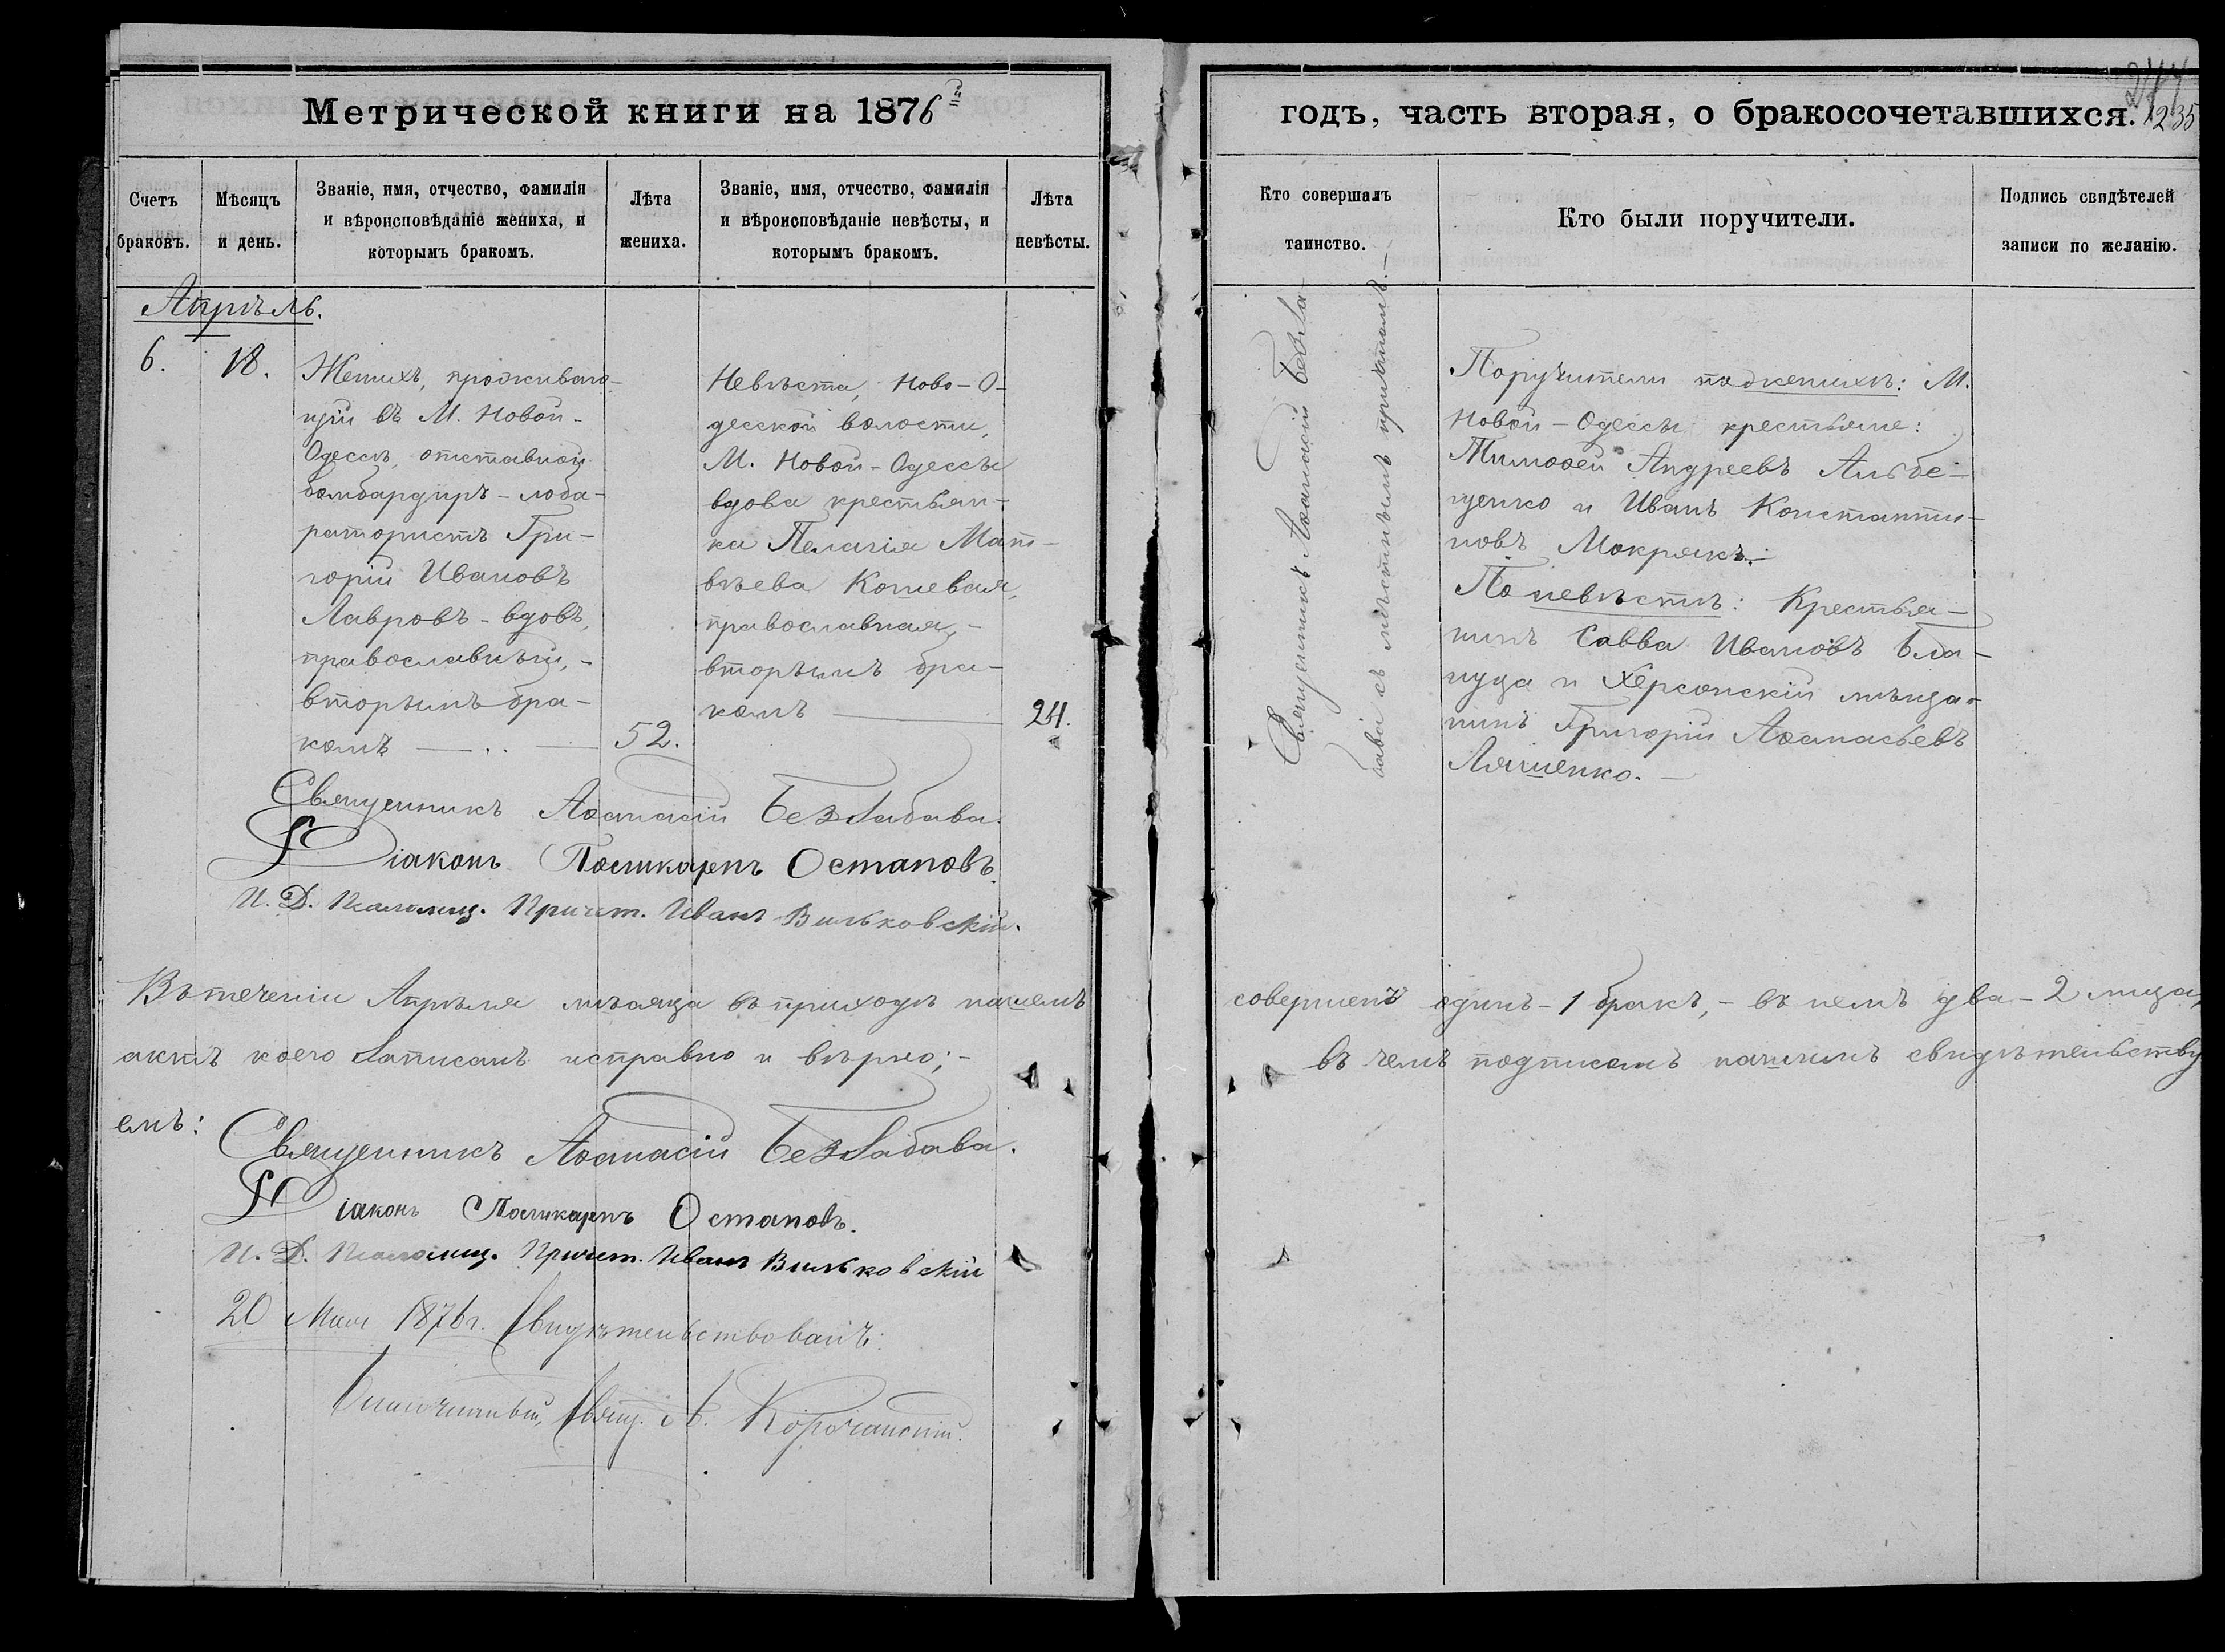 Метрической книги на 1876й
годъ, часть вторая, о бракосочетавшихся.
277
235
Счетъ
браковъ.
Мѣсяцъ
и день.
Званіе, имя, отчество, фамилія
и вѣроисповѣданіе жениха, и
которымъ бракомъ.
Лѣта
жениха.
Званіе, имя, отчество, фамилія
и вѣроисповѣданіе невѣсты, и
которымъ бракомъ.
Лѣта
невѣсты.
Кто совершалъ
таинство.
Кто были поручители.
Подпись свидѣтелей
записи по желанію.
Апрѣль.
6.
18.
Женихъ, проживаю-
щій въ М. Новой-
Одессѣ, отставной
бомбардиръ-лоба-
ратористъ Гри-
горій Ивановъ
Лавровъ - вдовъ,
православный, -
вторымъ бра-
комъ
52.
Невѣста, Ново-О-
десской волости,
М. Новой-Одессы
вдова крестьян-
ка Пелагія Мат-
вѣева Кошевая,
православная, -
вторымъ бра-
комъ
24.
Священникъ Аѳанасій БезЗа-
бава съ мѣстнымъ причтомъ. -
Поручители по женихѣ: М.
Новой-Одессы крестьяне:
Тимоѳей Андреевъ Альбе-
щенко и Иванъ Константи-
новъ Мокрякъ.
По невѣстѣ: Крестья-
нинъ Савва Ивановъ Бла-
нуца и Херсонскій мѣща-
нинъ Григорій Аѳанасьевъ
Ляшенко. -
Священникъ Аѳанасій БезЗабава.
Діаконъ Поликарпъ Остаповъ.
И. Д. Псаломщ. Причет. Иванъ Вильковскій.
Въ теченіи Апрѣля мѣсяца въ приходѣ нашемъ совершенъ одинъ - 1 бракъ, - въ немъ два - 2 лица,
актъ коего записанъ исправно и вѣрно; - въ чемъ подписомъ нашимъ свидѣтельству
емъ:
Священникъ Аѳанасій БезЗабава.
Діаконъ Поликарпъ Остаповъ.
И. Д. Псаломщ. Причет. Иванъ Вильковскій
20 Мая 1876 г. Свидѣтельствовалъ:
Благочинный, Свящ. А. Корчанскій.